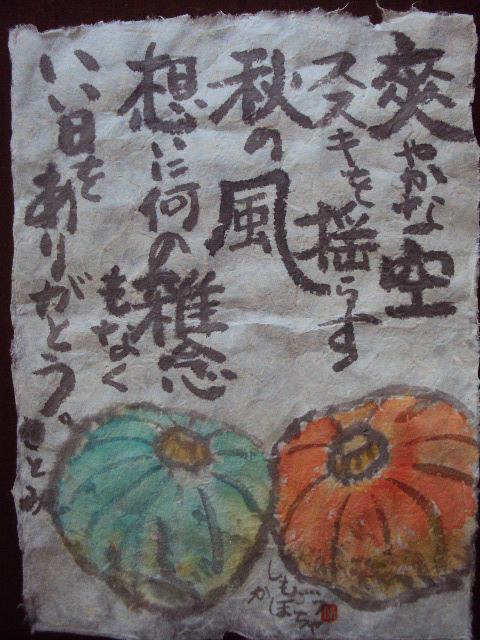 爽やかな空
ススキを揺らす
秋の風
想いに何の雑念
もなく
いい日を
ありがとう。
さとみ
かぼちゃ